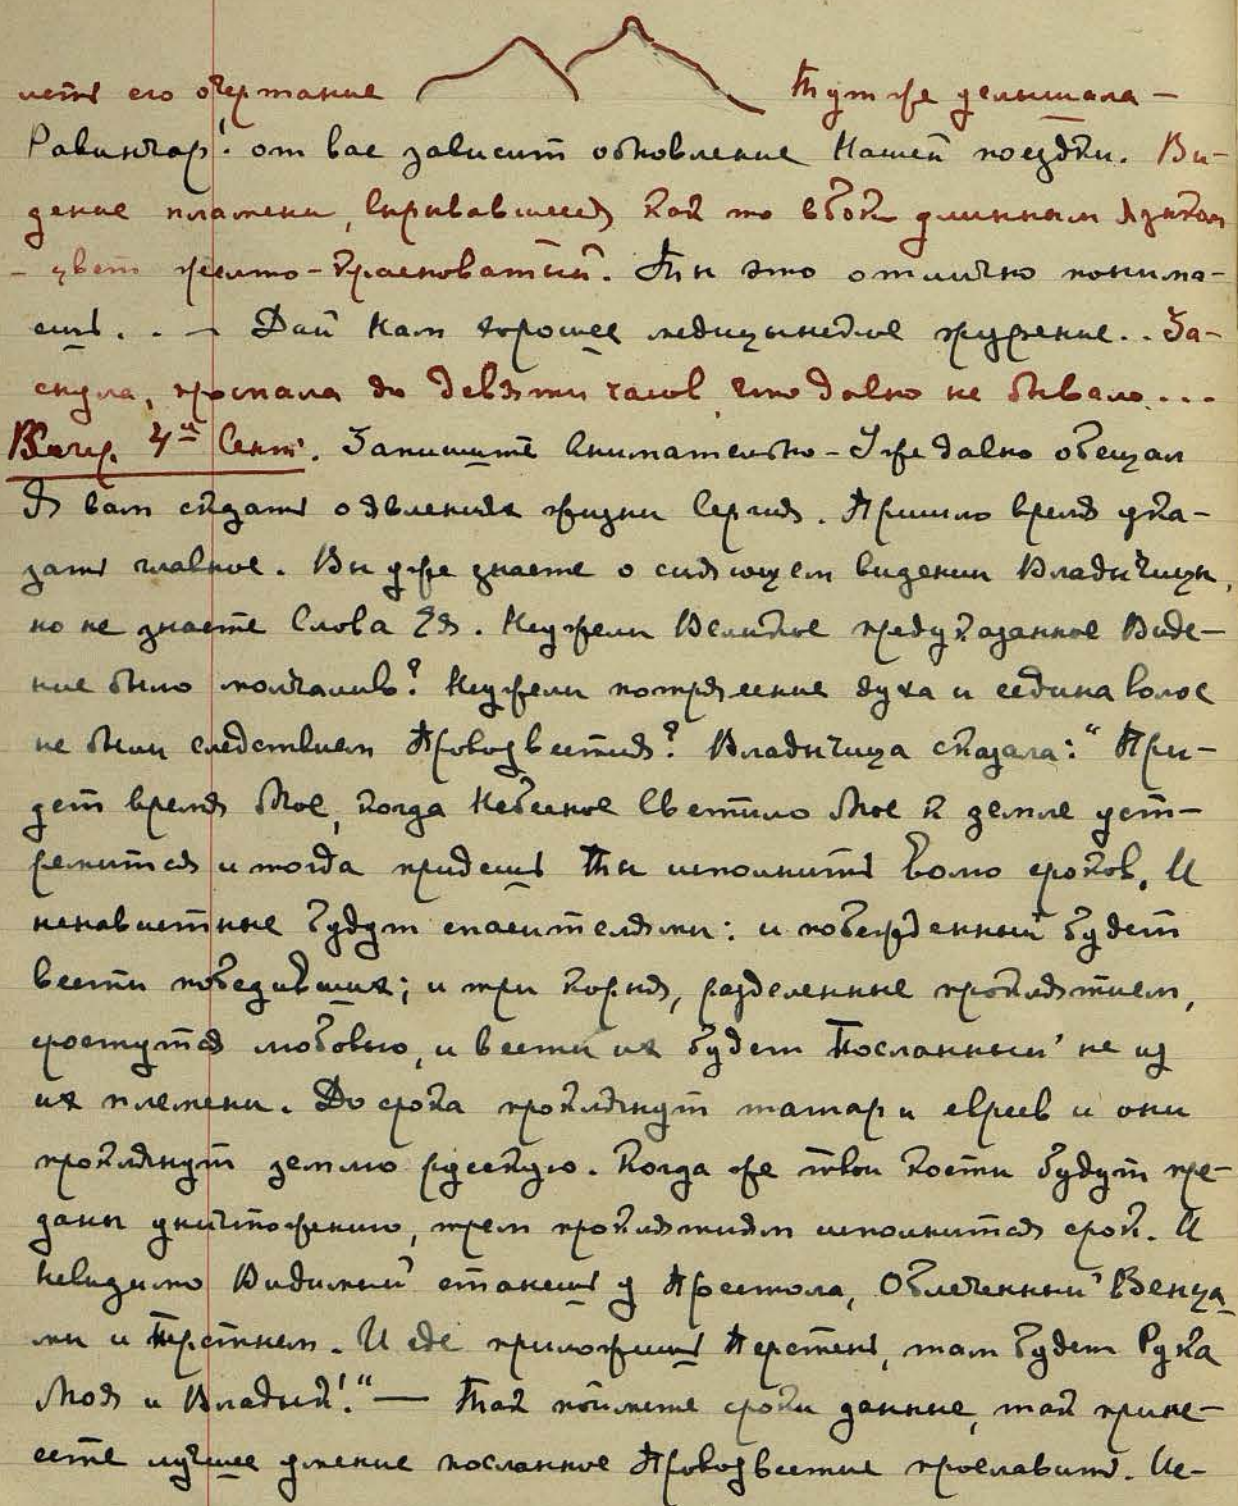 нешь его очертание Тут же услышала —
Равинчар! от вас зависит обновление Нашей поездки. Ви-
дение пламени, скрывавшееся как то вбок длинным языком
— цвет желто-красноватый. Ты это отлично понима-
ешь. . — Дай Нам хорошее медицынское суждение. . За-
снула, проспала до девяти часов, что давно не бывало...
Вечер. 4го Сент. Запишите внимательно — Уже давно обещал
Я вам сказать о явлениях жизни Сергия. Пришло время ука-
зать главное. Вы уже знаете о сияющем видении Владычицы,
но не знаете Слова Ея. Неужели Великое предуказанное Виде-
ние было молчаливо? Неужели потрясение духа и седина волос
не были следствием Провозвестия? Владычица сказала: "При-
дет время Мое, когда Небесное Светило Мое к земле уст-
ремится и тогда придешь Ты исполнить волю сроков. И
ненавистные будут спасителями: и побежденный будет
вести победивших; и три корня, разделенные проклятием,
срастутся любовью, и вести их будет Посланный не из
их племени. До срока проклянут татар и евреев и они
проклянут землю русскую. Когда же твои кости будут пре-
даны уничтожению, трем проклятиям исполнится срок. И
невидимо Видимый станешь у Престола, Облеченный Венца-
ми и Перстнем. И где приложишь Перстень, там будет Рука
Моя и Владык!" — Так поймете сроки данные, так прине-
сете лучшее умение посланное Провозвестие прославить. Ис-